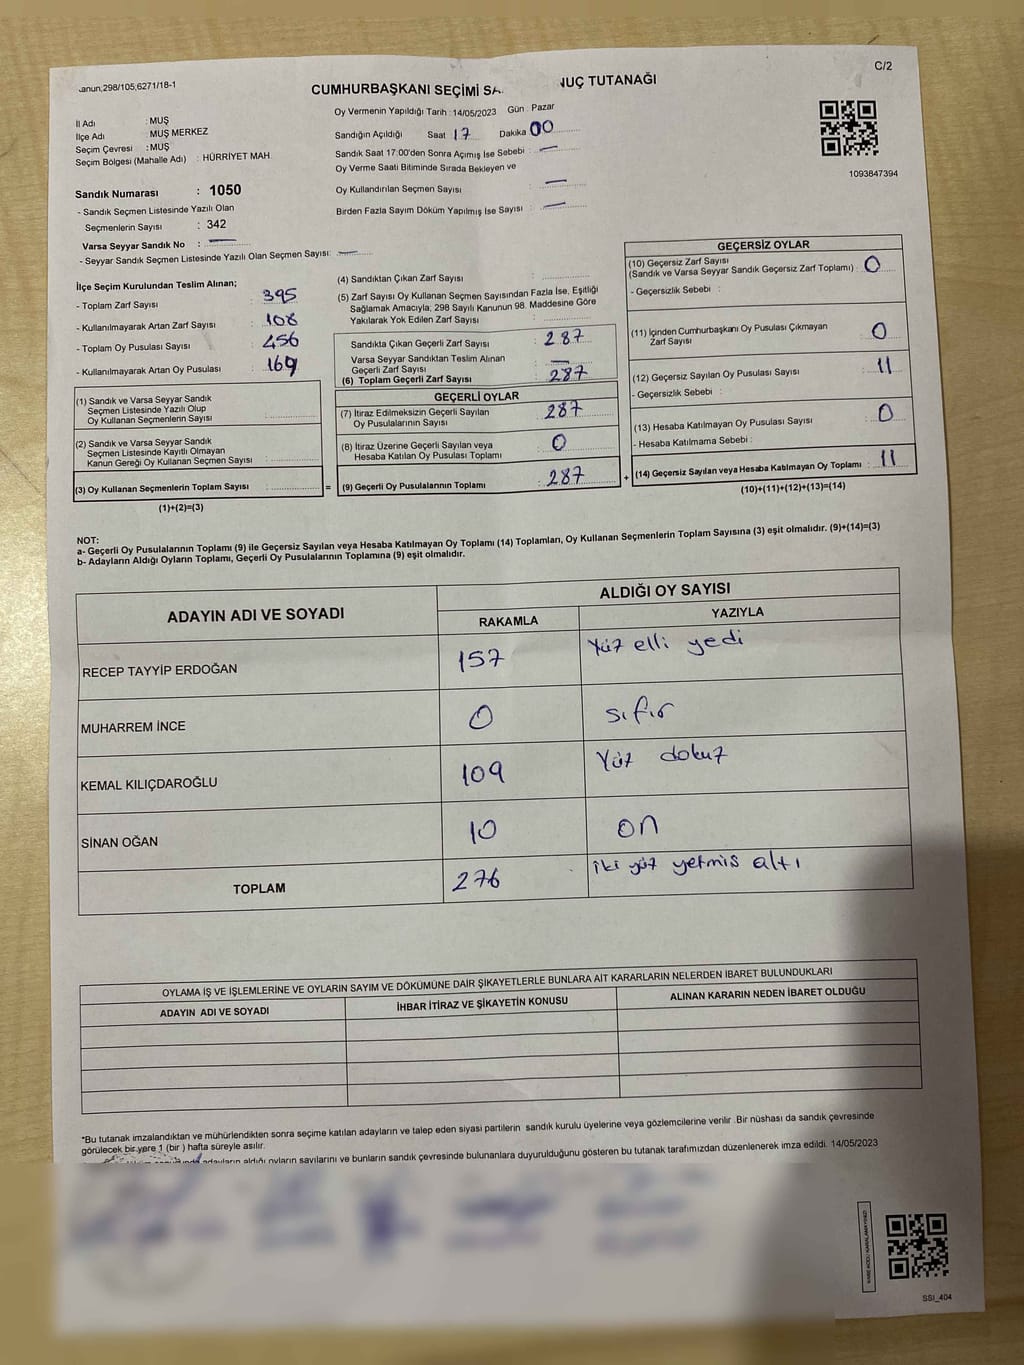 .anun,298/105;6271/18-1
C/2
CUMHURBAŞKANI SEÇİMİ SA NUÇ TUTANAĞI
İl Adı : MUŞ
İlçe Adı : MUŞ MERKEZ
Seçim Çevresi : MUŞ
Seçim Bölgesi (Mahalle Adı) : HÜRRİYET MAH.
Sandık Numarası : 1050
- Sandık Seçmen Listesinde Yazılı Olan
Seçmenlerin Sayısı : 342
Varsa Seyyar Sandık No : —
- Seyyar Sandık Seçmen Listesinde Yazılı Olan Seçmen Sayısı: —
Oy Vermenin Yapıldığı Tarih : 14/05/2023 Gün : Pazar
Sandığın Açıldığı Saat 17 Dakika 00
Sandık Saat 17:00'den Sonra Açımış İse Sebebi : —
Oy Verme Saati Bitiminde Sırada Bekleyen ve
Oy Kullandırılan Seçmen Sayısı : —
Birden Fazla Sayım Döküm Yapılmış İse Sayısı : —
1093847394
İlçe Seçim Kurulundan Teslim Alınan;
- Toplam Zarf Sayısı : 395
- Kullanılmayarak Artan Zarf Sayısı : 108
- Toplam Oy Pusulası Sayısı : 456
- Kullanılmayarak Artan Oy Pusulası : 169
(1) Sandık ve Varsa Seyyar Sandık
Seçmen Listesinde Yazılı Olup
Oy Kullanan Seçmenlerin Sayısı :
(2) Sandık ve Varsa Seyyar Sandık
Seçmen Listesinde Kayıtlı Olmayan
Kanun Gereği Oy Kullanan Seçmen Sayısı :
(3) Oy Kullanan Seçmenlerin Toplam Sayısı :
(1)+(2)=(3)
(4) Sandıktan Çıkan Zarf Sayısı :
(5) Zarf Sayısı Oy Kullanan Seçmen Sayısından Fazla İse, Eşitliği
Sağlamak Amacıyla; 298 Sayılı Kanunun 98. Maddesine Göre
Yakılarak Yok Edilen Zarf Sayısı :
Sandıkta Çıkan Geçerli Zarf Sayısı : 287
Varsa Seyyar Sandıktan Teslim Alınan
Geçerli Zarf Sayısı : —
(6) Toplam Geçerli Zarf Sayısı : 287
=
GEÇERLİ OYLAR
(7) İtiraz Edilmeksizin Geçerli Sayılan
Oy Pusulalarının Sayısı : 287
(8) İtiraz Üzerine Geçerli Sayılan veya
Hesaba Katılan Oy Pusulası Toplamı : 0
(9) Geçerli Oy Pusulalarının Toplamı : 287
+
GEÇERSİZ OYLAR
(10) Geçersiz Zarf Sayısı
(Sandık ve Varsa Seyyar Sandık Geçersiz Zarf Toplamı) : 0
- Geçersizlik Sebebi :
(11) İçinden Cumhurbaşkanı Oy Pusulası Çıkmayan
Zarf Sayısı : 0
(12) Geçersiz Sayılan Oy Pusulası Sayısı : 11
- Geçersizlik Sebebi :
(13) Hesaba Katılmayan Oy Pusulası Sayısı : 0
- Hesaba Katılmama Sebebi :
(14) Geçersiz Sayılan veya Hesaba Katılmayan Oy Toplamı : 11
(10)+(11)+(12)+(13)=(14)
NOT:
a- Geçerli Oy Pusulalarının Toplamı (9) ile Geçersiz Sayılan veya Hesaba Katılmayan Oy Toplamı (14) Toplamları, Oy Kullanan Seçmenlerin Toplam Sayısına (3) eşit olmalıdır. (9)+(14)=(3)
b- Adayların Aldığı Oyların Toplamı, Geçerli Oy Pusulalarının Toplamına (9) eşit olmalıdır.
ADAYIN ADI VE SOYADI
ALDIĞI OY SAYISI
RAKAMLA YAZIYLA
RECEP TAYYİP ERDOĞAN 157 Yüz elli yedi
MUHARREM İNCE 0 sıfır
KEMAL KILIÇDAROĞLU 109 Yüz dokuz
SİNAN OĞAN 10 on
TOPLAM 276 iki yüz yetmis altı
OYLAMA İŞ VE İŞLEMLERİNE VE OYLARIN SAYIM VE DÖKÜMÜNE DAİR ŞİKAYETLERLE BUNLARA AİT KARARLARIN NELERDEN İBARET BULUNDUKLARI
ADAYIN ADI VE SOYADI İHBAR İTİRAZ VE ŞİKAYETİN KONUSU ALINAN KARARIN NEDEN İBARET OLDUĞU
*Bu tutanak imzalandıktan ve mühürlendikten sonra seçime katılan adayların ve talep eden siyasi partilerin sandık kurulu üyelerine veya gözlemcilerine verilir .Bir nüshası da sandık çevresinde
görülecek bir yere 1 (bir ) hafta süreyle asılır.
adayların aldığı oyların sayılarını ve bunların sandık çevresinde bulunanlara duyurulduğunu gösteren bu tutanak tarafımızdan düzenlenerek imza edildi. 14/05/2023
SSI_404